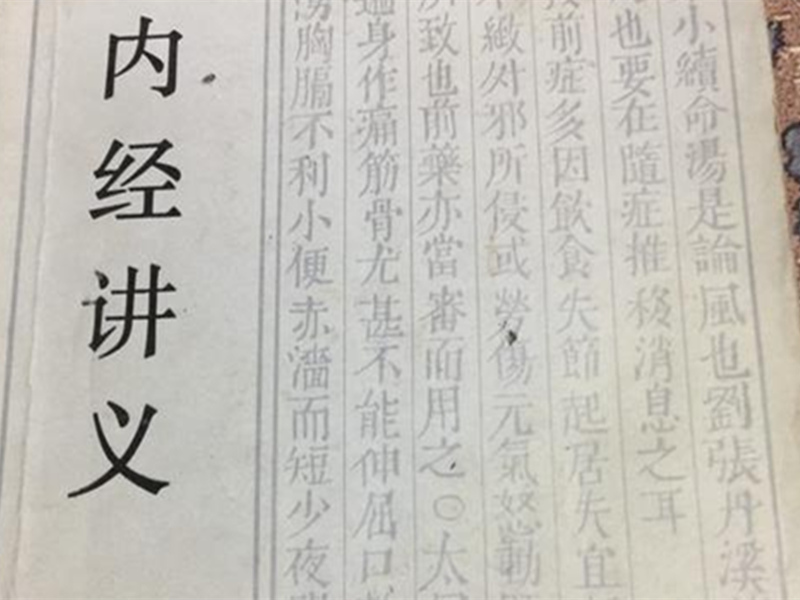 内经讲义
小續命湯是論風也劉張丹溪
也要在隨症推移消息之耳
前症多因飲食失節起居失宜
緻外邪所侵或勞傷元氣怒動
所致也前藥亦當審而用之○太
遍身作痛筋骨尤甚不能伸屈口
胸膈不利小便赤濇而短少夜